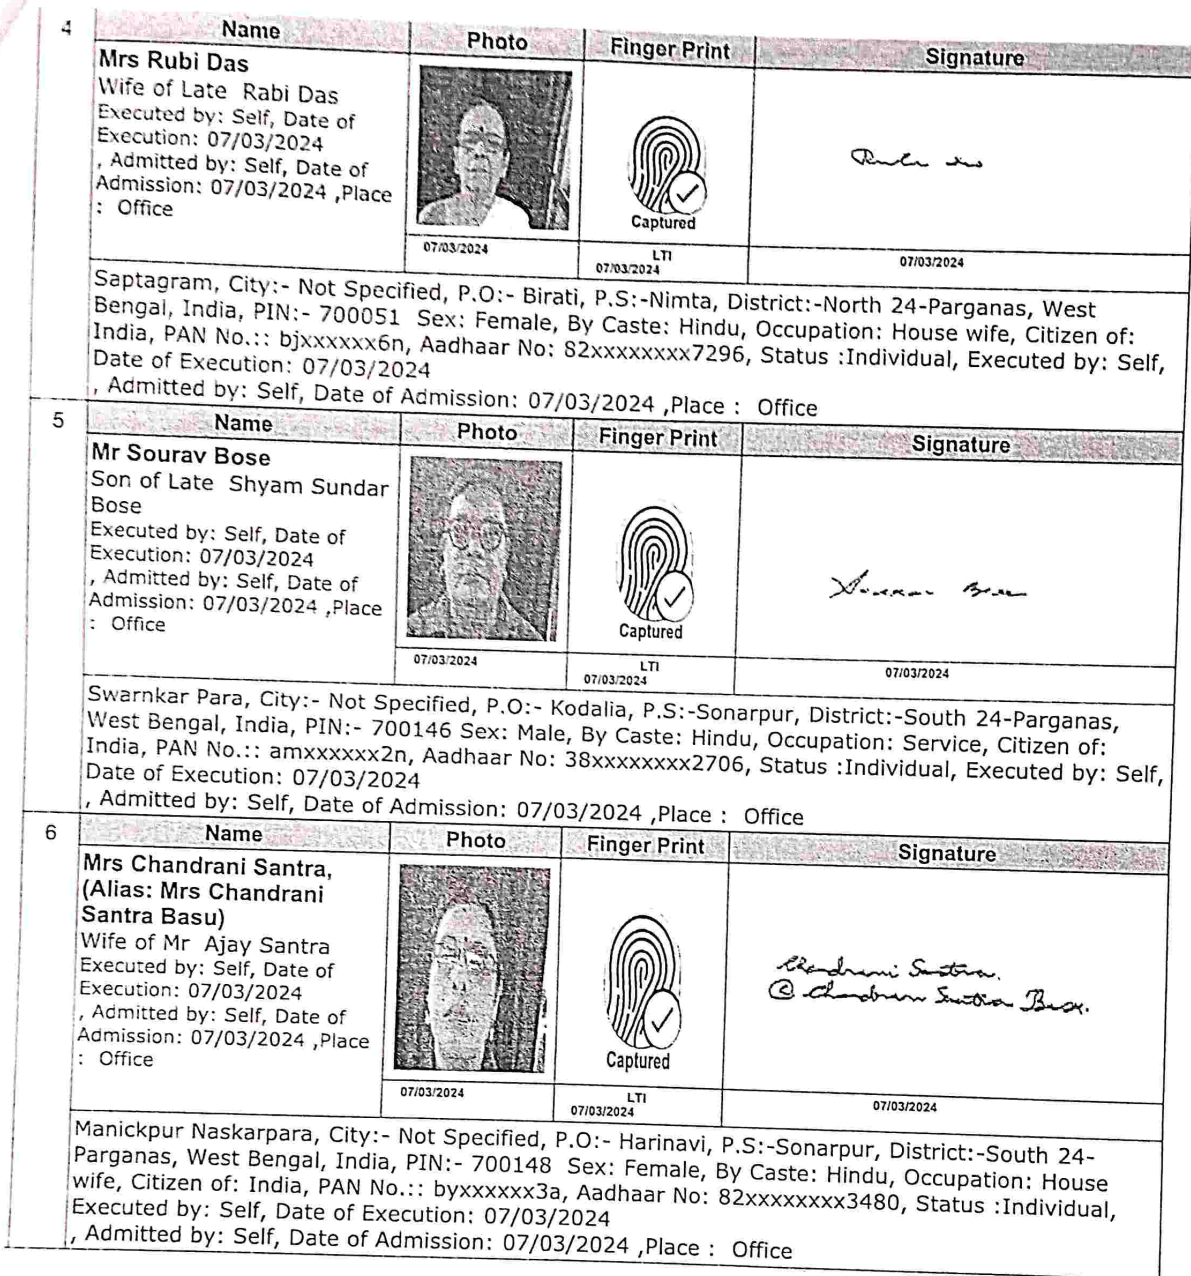 4
Name Photo Finger Print Signature
Mrs Rubi Das
Wife of Late Rabi Das
Executed by: Self, Date of
Execution: 07/03/2024
, Admitted by: Self, Date of
Admission: 07/03/2024 ,Place
: Office
Captured
07/03/2024 LTI 07/03/2024
07/03/2024
Saptagram, City:- Not Specified, P.O:- Birati, P.S:-Nimta, District:-North 24-Parganas, West
Bengal, India, PIN:- 700051 Sex: Female, By Caste: Hindu, Occupation: House wife, Citizen of:
India, PAN No.:: bjxxxxxx6n, Aadhaar No: 82xxxxxxxx7296, Status :Individual, Executed by: Self,
Date of Execution: 07/03/2024
, Admitted by: Self, Date of Admission: 07/03/2024 ,Place : Office
5
Name Photo Finger Print Signature
Mr Sourav Bose
Son of Late Shyam Sundar
Bose
Executed by: Self, Date of
Execution: 07/03/2024
, Admitted by: Self, Date of
Admission: 07/03/2024 ,Place
: Office
Captured
Sourav Bose
07/03/2024 LTI 07/03/2024
07/03/2024
Swarnkar Para, City:- Not Specified, P.O:- Kodalia, P.S:-Sonarpur, District:-South 24-Parganas,
West Bengal, India, PIN:- 700146 Sex: Male, By Caste: Hindu, Occupation: Service, Citizen of:
India, PAN No.:: amxxxxxx2n, Aadhaar No: 38xxxxxxxx2706, Status :Individual, Executed by: Self,
Date of Execution: 07/03/2024
, Admitted by: Self, Date of Admission: 07/03/2024 ,Place : Office
6
Name Photo Finger Print Signature
Mrs Chandrani Santra,
(Alias: Mrs Chandrani
Santra Basu)
Wife of Mr Ajay Santra
Executed by: Self, Date of
Execution: 07/03/2024
, Admitted by: Self, Date of
Admission: 07/03/2024 ,Place
: Office
Captured
Chandrani Santra.
@ Chandrani Santra Basu.
07/03/2024 LTI 07/03/2024
07/03/2024
Manickpur Naskarpara, City:- Not Specified, P.O:- Harinavi, P.S:-Sonarpur, District:-South 24-
Parganas, West Bengal, India, PIN:- 700148 Sex: Female, By Caste: Hindu, Occupation: House
wife, Citizen of: India, PAN No.:: byxxxxxx3a, Aadhaar No: 82xxxxxxxx3480, Status :Individual,
Executed by: Self, Date of Execution: 07/03/2024
, Admitted by: Self, Date of Admission: 07/03/2024 ,Place : Office